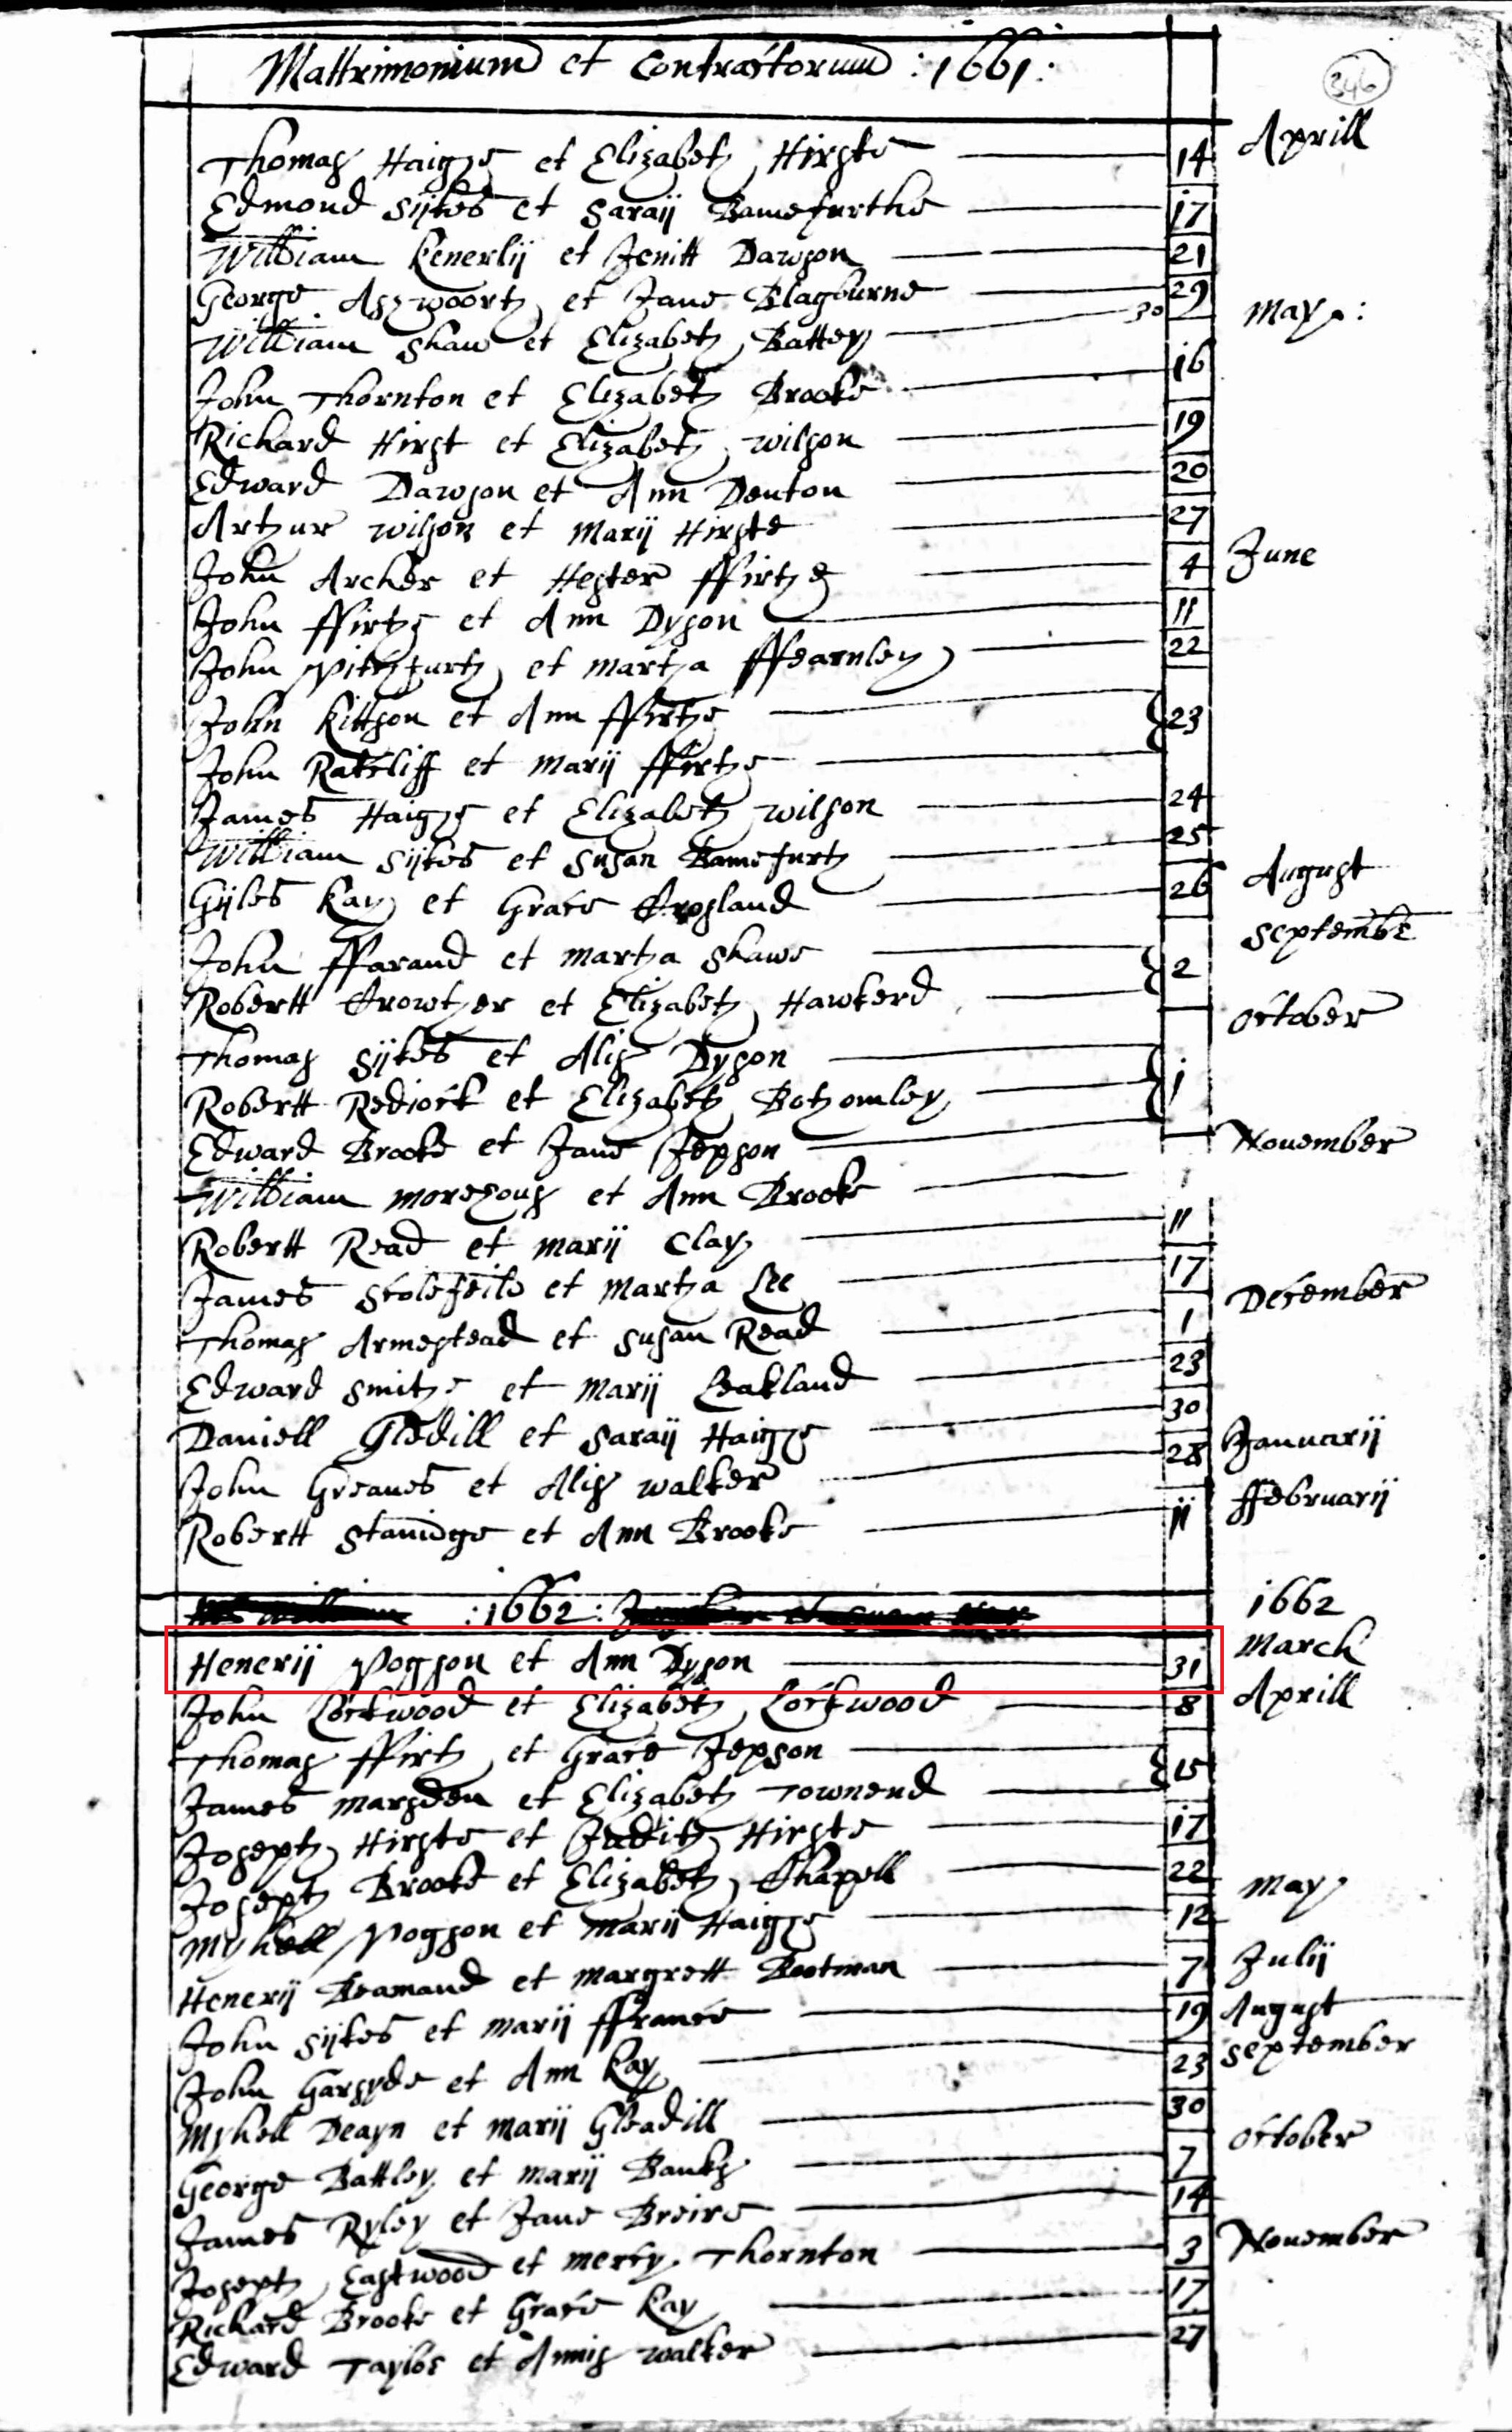 Mattrimonium et Contractorum :1661:
346
Thomas Haighe et Elizabeth Hirste 14 Aprill
Edmond Sijkes et Saraij Bamefurthe 17
William Kenerlij et Jenitt Dawson 21
George Ashwoorth et Jane Blagburne 29
William Shaw et Elizabeth Battey 30 May:
John Thornton et Elizabeth Brooke 16
Richard Hirst et Elizabeth Wilson 19
Edward Dawson et Ann Denton 20
Arthur Wilson et Marij Hirste 27
John Archer et Hester ffirthe 4 June
John ffirthe et Ann Dyson 11
John Pithfurth et Martha ffearnley 22
John Kittson et Ann ffirthe 23
John Ratcliff et Marij ffirthe
James Haighe et Elizabeth Wilson 24
William Sijkes et Susan Bamefurth 25
Gijles Kay et Grace Crosland 26 August
John ffarand et Martha Shawe 2 Septembe
Robertt Crowther et Elizabeth Hawkerd
Thomas Sijkes et Alis Dyson October
Robertt Rediock et Elizabeth Bothomley 1
Edward Brooke et Jane Jepson
William Morehous et Ann Brooke November
Robertt Read et Marij Clay 11
James Scolefeild et Martha Lee 17
Thomas Armestead et Susan Read 1 December
Edward Smithe et Marij Leakland 23
Daniell Gledill et Saraij Haighe 30
John Greaues et Alis Walker 28 Januarij
Robertt Stanidge et Ann Brooke 11 ffebruarij
:1662: 1662
Henerij Pogson et Ann Dyson 31 March
John Lockwood et Elizabeth Lockwood 8 Aprill
Thomas ffirth et Grace Jepson 15
James Marsden et Elizabeth Townend
Joseph Hirste et Judith Hirste 17
Joseph Brooke et Elizabeth Chapell 22
Myhell Pogson et Marij Haighe 12 May
Henerij Beamand et Margrett Bootman 7 Julij
John Sijkes et Marij ffrance 19 August
John Garsyde et Ann Kay 23 September
Myhell Deayn et Marij Gleadill 30
George Battley et Marij Banks 7 October
James Ryley et Jane Breire 14
Joseph Eastwood et Mercy Thornton 3 November
Richard Brooke et Grace Kay 17
Edward Taylor et Annis Walker 27